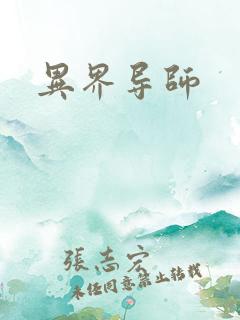 異界导師
張志宏
未经同意禁止转载